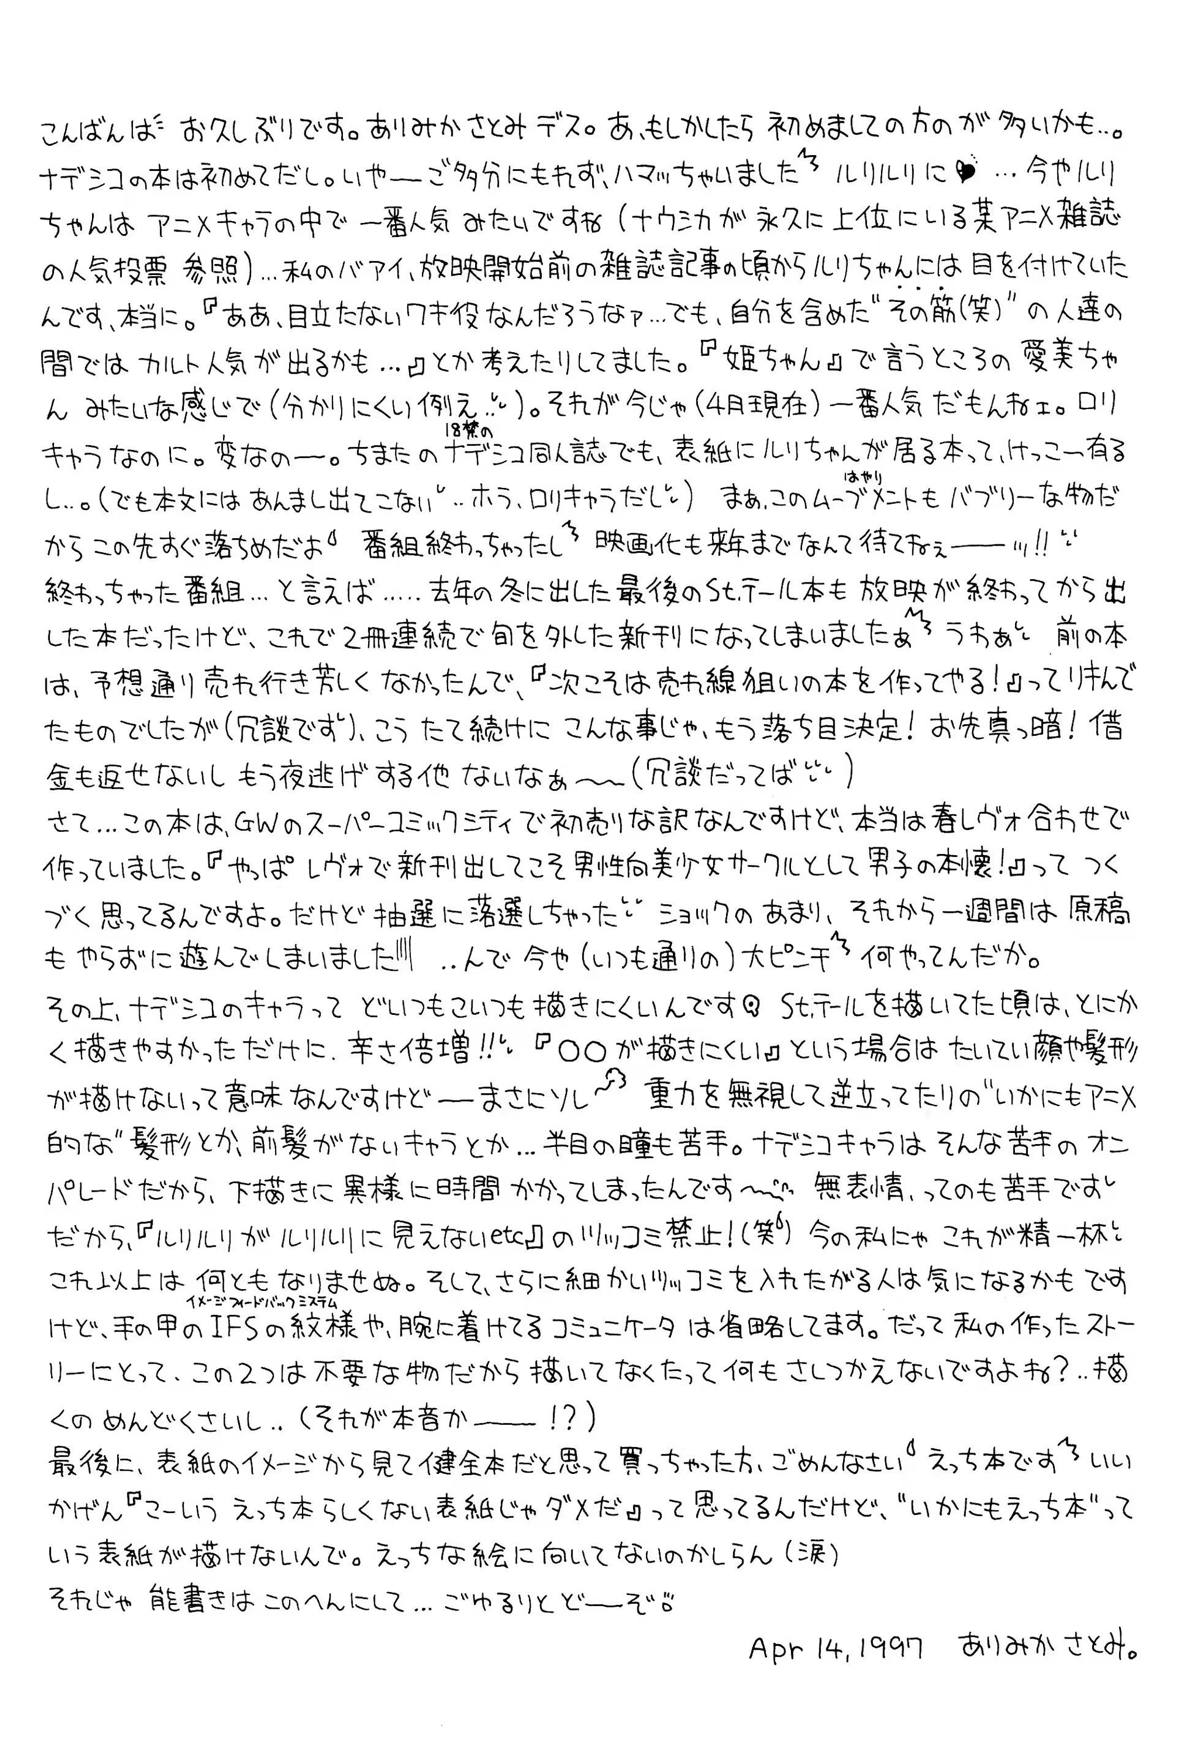 こんばんは お久しぶりです。ありみかさとみデス。あ、もしかしたら 初めましての方のが多いかも..。
ナデシコの本は初めてだし。いやーーご多分にもれず、ハマッちゃいました ルリルリに♥ …今やルリ
ちゃんは アニメキャラの中で 一番人気 みたいですね (ナウシカが 永久に上位にいる某アニメ雑誌
の人気投票 参照)…私のバアイ、放映開始前の雑誌記事の頃からルリちゃんには 目を付けていた
んです、本当に。『ああ、目立たないワキ役なんだろうなァ…でも、自分を含めた"その筋(笑)"の人達の
間では カルト人気が出るかも…』とか考えたりしてました。『姫ちゃん』で言うところの 愛美ちゃ
ん みたいな感じで(分かりにくい例え..)。それが今じゃ(4月現在)一番人気だもんねェ。ロリ
キャラなのに。変なのー。ちまたの18禁のナデシコ同人誌でも、表紙にルリちゃんが居る本って、けっこー有る
し..。(でも本文にはあんまし出てこない..ホラ、ロリキャラだし) まぁ、このムーブメントはやりも バブリーな物だ
からこの先すぐ落ちめだよ 番組終わっちゃったし 映画化も来年までなんて待てねぇーーッ!!
終わっちゃった番組…と言えば.....去年の冬に出した最後のSt.テール本も 放映が終わってから出
した本だったけど、これで2冊連続で旬を外した新刊になってしまいましたぁ うわぁ 前の本
は、予想通り売れ行き芳しくなかったんで、『次こそは売れ線狙いの本を作ってやる!』ってリキんで
たものでしたが(冗談です)、こう たて続けに こんな事じゃ、もう落ち目決定! お先真っ暗! 借
金も返せないし もう夜逃げする他 ないなぁ〜〜(冗談だってば)
さて…この本は、GWのスーパーコミックシティで初売りな訳なんですけど、本当は春レヴォ合わせで
作っていました。『やっぱ レヴォで新刊出してこそ男性向美少女サークルとして男子の本懐!』って つく
づく思ってるんですよ。だけど 抽選に落選しちゃった ショックのあまり、それから一週間は 原稿
も やらずに遊んでしまいました ..んで 今や(いつも通りの)大ピンチ 何やってんだか。
その上、ナデシコのキャラって どいつもこいつも描きにくいんです St.テールを描いてた頃は、とにか
く描きやすかっただけに、辛さ倍増!! 『○○が描きにくい』という場合はたいてい顔や髪形
が描けないって意味なんですけどーまさにソレ 重力を無視して逆立ってたりの"いかにもアニメ
的な"髪形とか、前髪がないキャラとか…半目の瞳も苦手。ナデシコキャラはそんな苦手の オン
パレードだから、下描きに異様に時間かかってしまったんです〜 無表情、ってのも苦手です
だから、『ルリルリがルリルリに見えないetc』のツッコミ禁止!(笑) 今の私にゃ これが精一杯
これ以上は 何ともなりませぬ。そして、さらに細かいツッコミを入れたがる人は気になるかもです
けど、手の甲のIFSイメージフィードバックシステムの紋様や、腕に着けてるコミュニケータは省略してます。だって私の作ったストー
リーにとって、この2つは不要な物だから描いてなくたって何もさしつかえないですよね?..描
くのめんどくさいし..(それが本音かーー!?)
最後に、表紙のイメージから見て健全本だと思って買っちゃった方、ごめんなさい えっち本です いい
かげん『こーいう えっち本らしくない表紙じゃダメだ』って思ってるんだけど、"いかにもえっち本"って
いう表紙が描けないんで。えっちな絵に向いてないのかしらん(涙)
それじゃ 能書きはこのへんにして… ごゆるりと どーぞ
Apr 14,1997 ありみかさとみ。